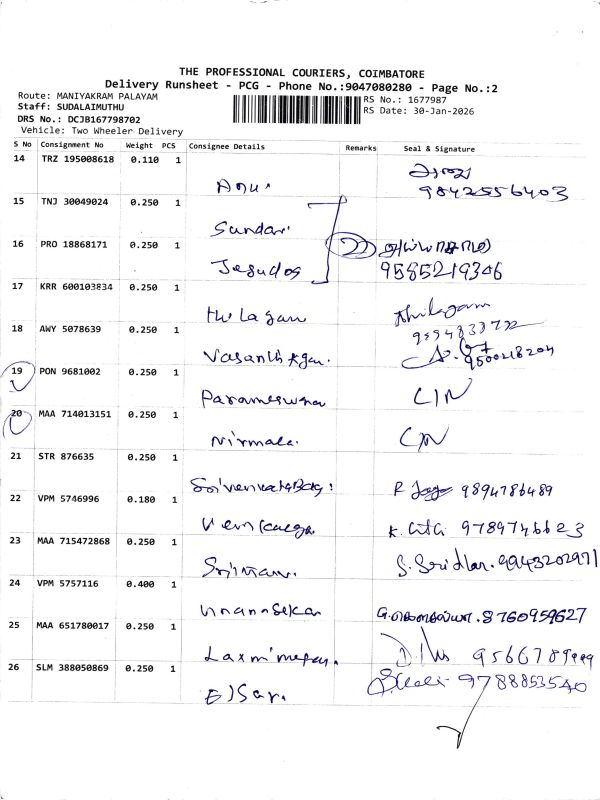 THE PROFESSIONAL COURIERS, COIMBATORE
Delivery Runsheet - PCG - Phone No.:9047080280 - Page No.:2
Route: MANIYAKRAM PALAYAM
Staff: SUDALAIMUTHU
DRS No.: DCJB167798702
Vehicle: Two Wheeler Delivery
RS No.: 1677987
RS Date: 30-Jan-2026
S No Consignment No Weight PCS Consignee Details Remarks Seal & Signature
14 TRZ 195008618 0.110 1
Anu. 9842556403
15 TNJ 30049024 0.250 1
Sundar.
16 PRO 18868171 0.250 1
Jesudos 22 9585219346
17 KRR 600103834 0.250 1
thilagam Thilagam
18 AWY 5078639 0.250 1
9500218204
19 PON 9681002 0.250 1
Parameswara C/N
20 MAA 714013151 0.250 1
Nirmala. C/N
21 STR 876635 0.250 1
9894786489
22 VPM 5746996 0.180 1
9789746623
23 MAA 715472868 0.250 1
S. Sridhar. 9943202971
24 VPM 5757116 0.400 1
8760959627
25 MAA 651780017 0.250 1
9566789999
26 SLM 388050869 0.250 1
9788853540